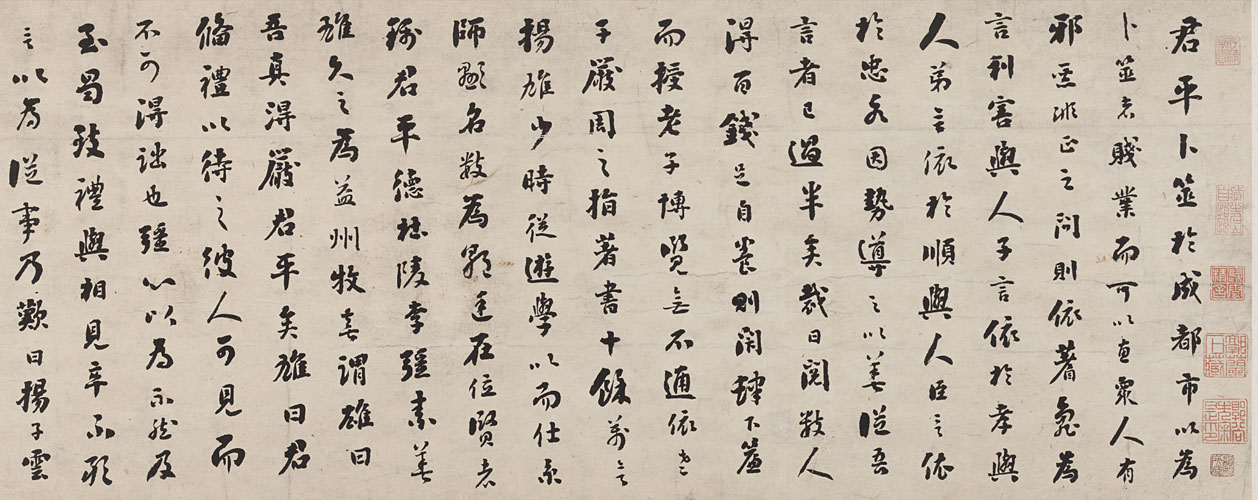 君平卜筮於成都市以為
卜筮者賤業而可以惠衆人有
邪惡非正之問則依蓍龜為
言利害與人子言依於孝與
人弟言依於順與人臣言依
於忠各因勢導之以善從吾
言者已過半矣裁日閱數人
得百錢足自養則閉肆下簾
而授老子博覽無不通依老
子嚴周之指著書十餘萬言
揚雄少時從遊學以而仕京
師顯名數為朝廷在位賢者
稱君平德杜陵李彊素善
雄久之為益州牧喜謂雄曰
吾真得嚴君平矣雄曰君
備禮以待之彼人可見而
不可得詘也彊心以為不然及
至蜀致禮與相見卒不敢
言以為從事乃歎曰揚子雲